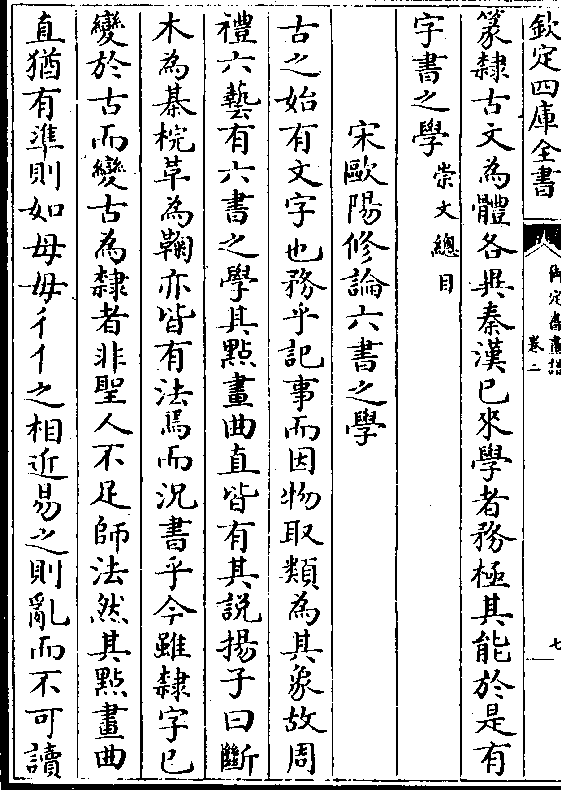 欽定四庫全書
御定書畫譜
卷二
七
篆隸古文為體各異秦漢已來學者務極其能於是有
字書之學 崇文總目
宋歐陽修論六書之學
古之始有文字也務乎記事而因物取類為其象故周
禮六藝有六書之學其㸃畫曲直皆有其說揚子曰斷
木為棊梡革為鞠亦皆有法焉而況書乎今雖隸字已
變於古而變古為隸者非聖人不足師法然其㸃畫曲
直猶有準則如毋母彳亻之相近易之則亂而不可讀